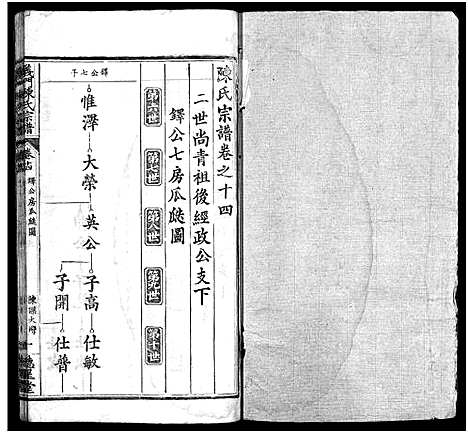 陳氏宗譜卷之十四
二世尚青祖後經政公支下
鐸公七房瓜瓞圖
第六世
第七世
第八世
第九世
第十世
鐸公七子
惟澤
大榮
英公
子高
仕敏
子開
仕晉
義門陳氏宗譜
卷十四
鐸公房瓜瓞圖
一